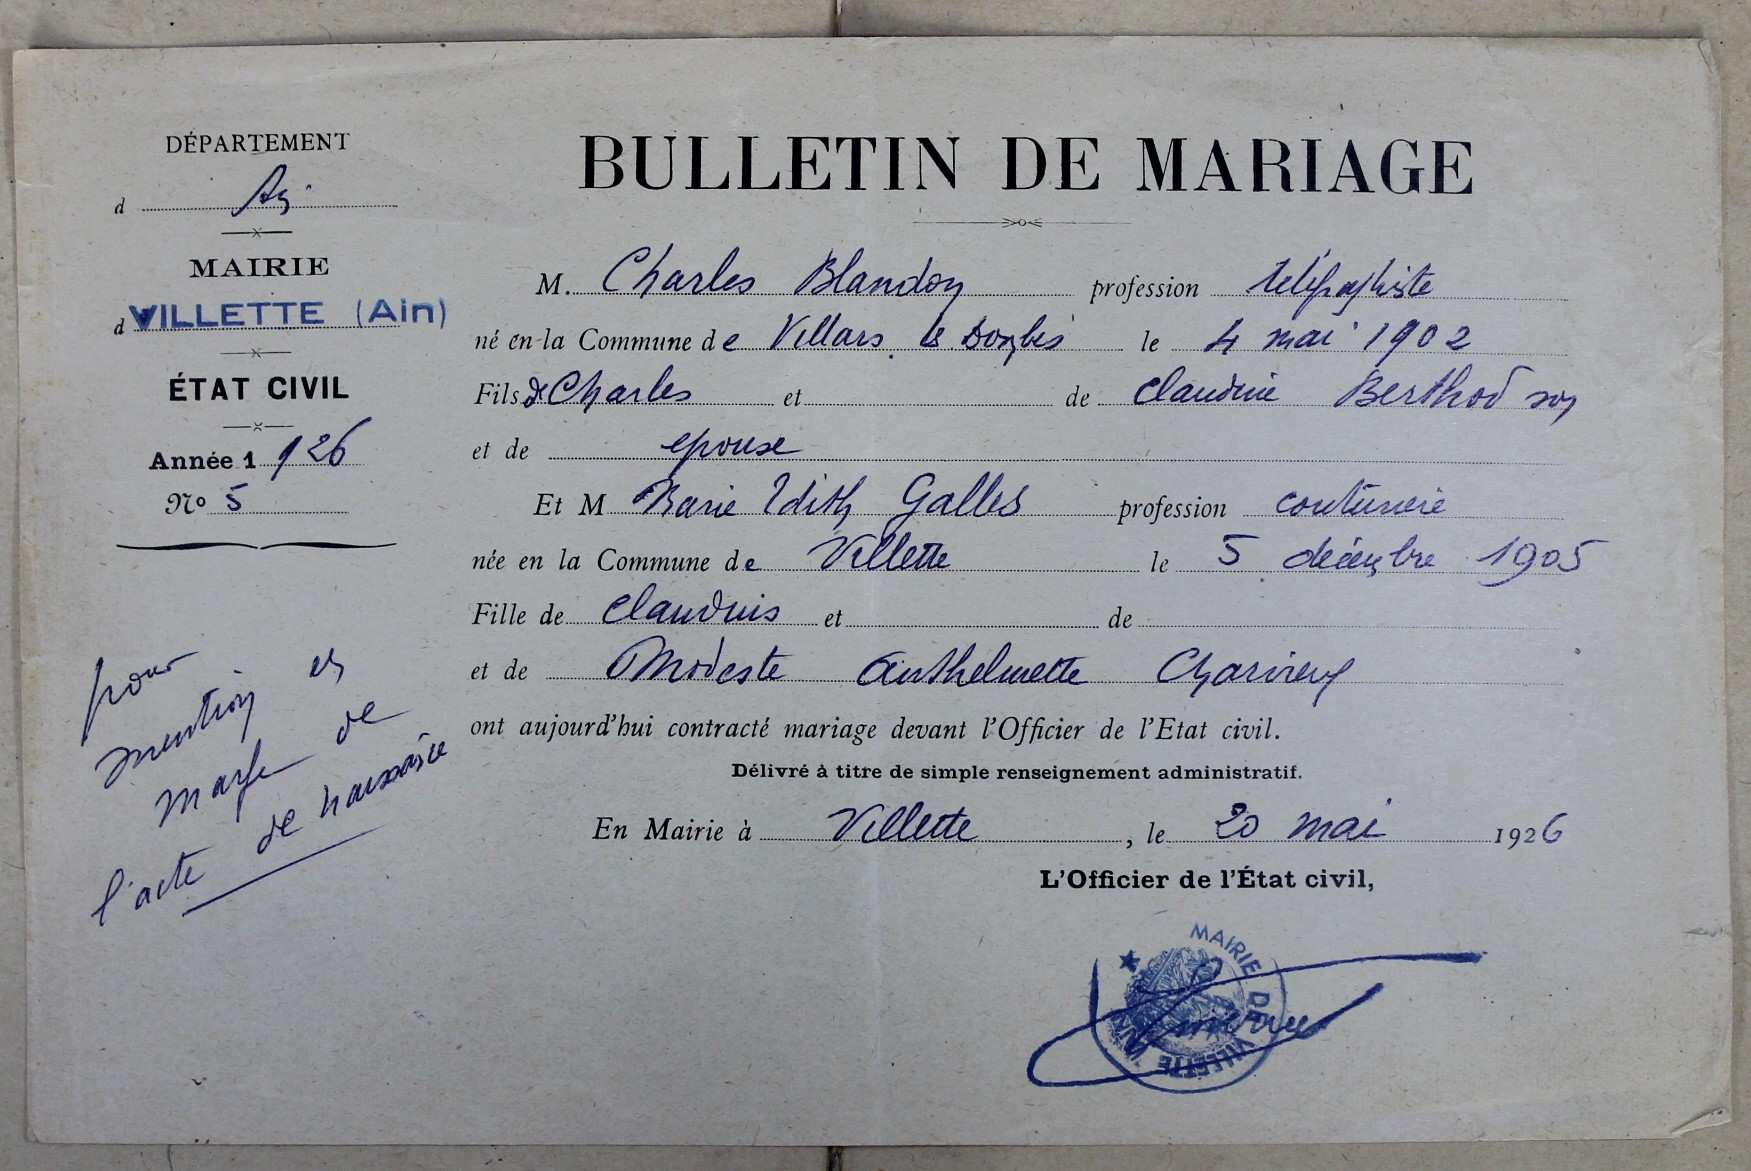 DÉPARTEMENT
d Ain
MAIRIE
d VILLETTE (Ain)
ÉTAT CIVIL
Année 1926
No 5
pour
mention en
marge de
l'acte de naissance
BULLETIN DE MARIAGE
M. Charles Blandon profession télégraphiste
né en la Commune de Villars les Dombes le 4 mai 1902
Fils de Charles et de Claudine Berthod son
et de epouse
Et M Marie Edith Gallet profession couturière
née en la Commune de Villette le 5 décembre 1905
Fille de Claudius et de
et de Modeste Anthelmette Charvieux
ont aujourd'hui contracté mariage devant l'Officier de l'Etat civil.
Délivré à titre de simple renseignement administratif.
En Mairie à Villette, le 20 mai 1926
L'Officier de l'État civil,
MAIRIE DE VILLETTE AIN